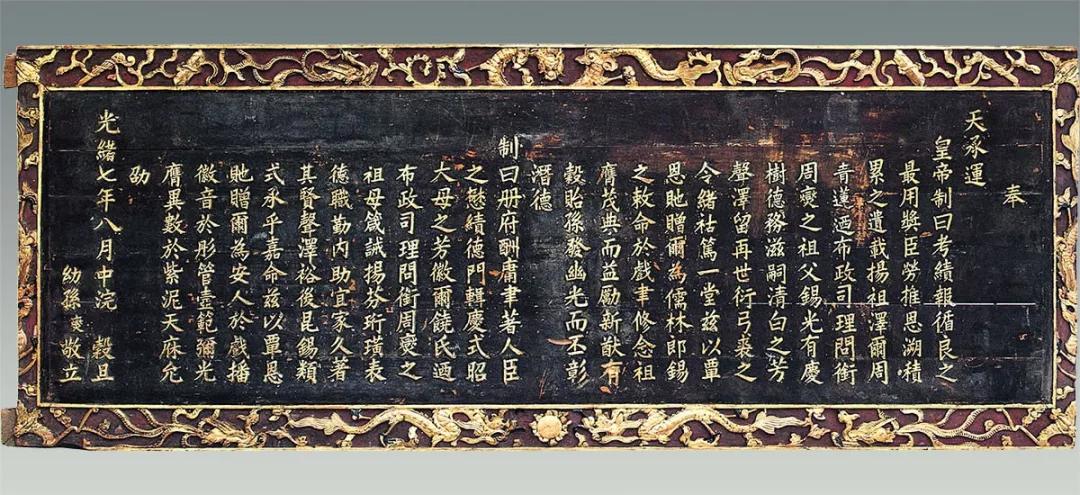 奉
天承運
皇帝制曰考績報循良之
最用獎臣勞推恩溯積
累之遺載揚祖澤爾周
青蓮迺布政司理問銜
周燮之祖父錫光有慶
樹德務滋嗣清白之芳
聲澤留再世衍弓裘之
令緒祜篤一堂茲以覃
恩貤贈爾為儒林郎錫
之敕命於戲聿修念祖
膺茂典而益勵新猷有
穀貽孫發幽光而丕彰
潛德
制曰册府酬庸聿著人臣
之懋績德門輯慶式昭
大母之芳徽爾饒氏迺
布政司理問銜周燮之
祖母箴誡揚芬珩璜表
德職勤內助宜家久著
其賢聲澤裕後昆錫類
式承乎嘉命茲以覃恩
貤贈爾為安人於戲播
徽音於彤管壼範彌光
膺異數於紫泥天庥允
劭
光緒七年八月中浣 穀旦
幼孫 燮 敬立